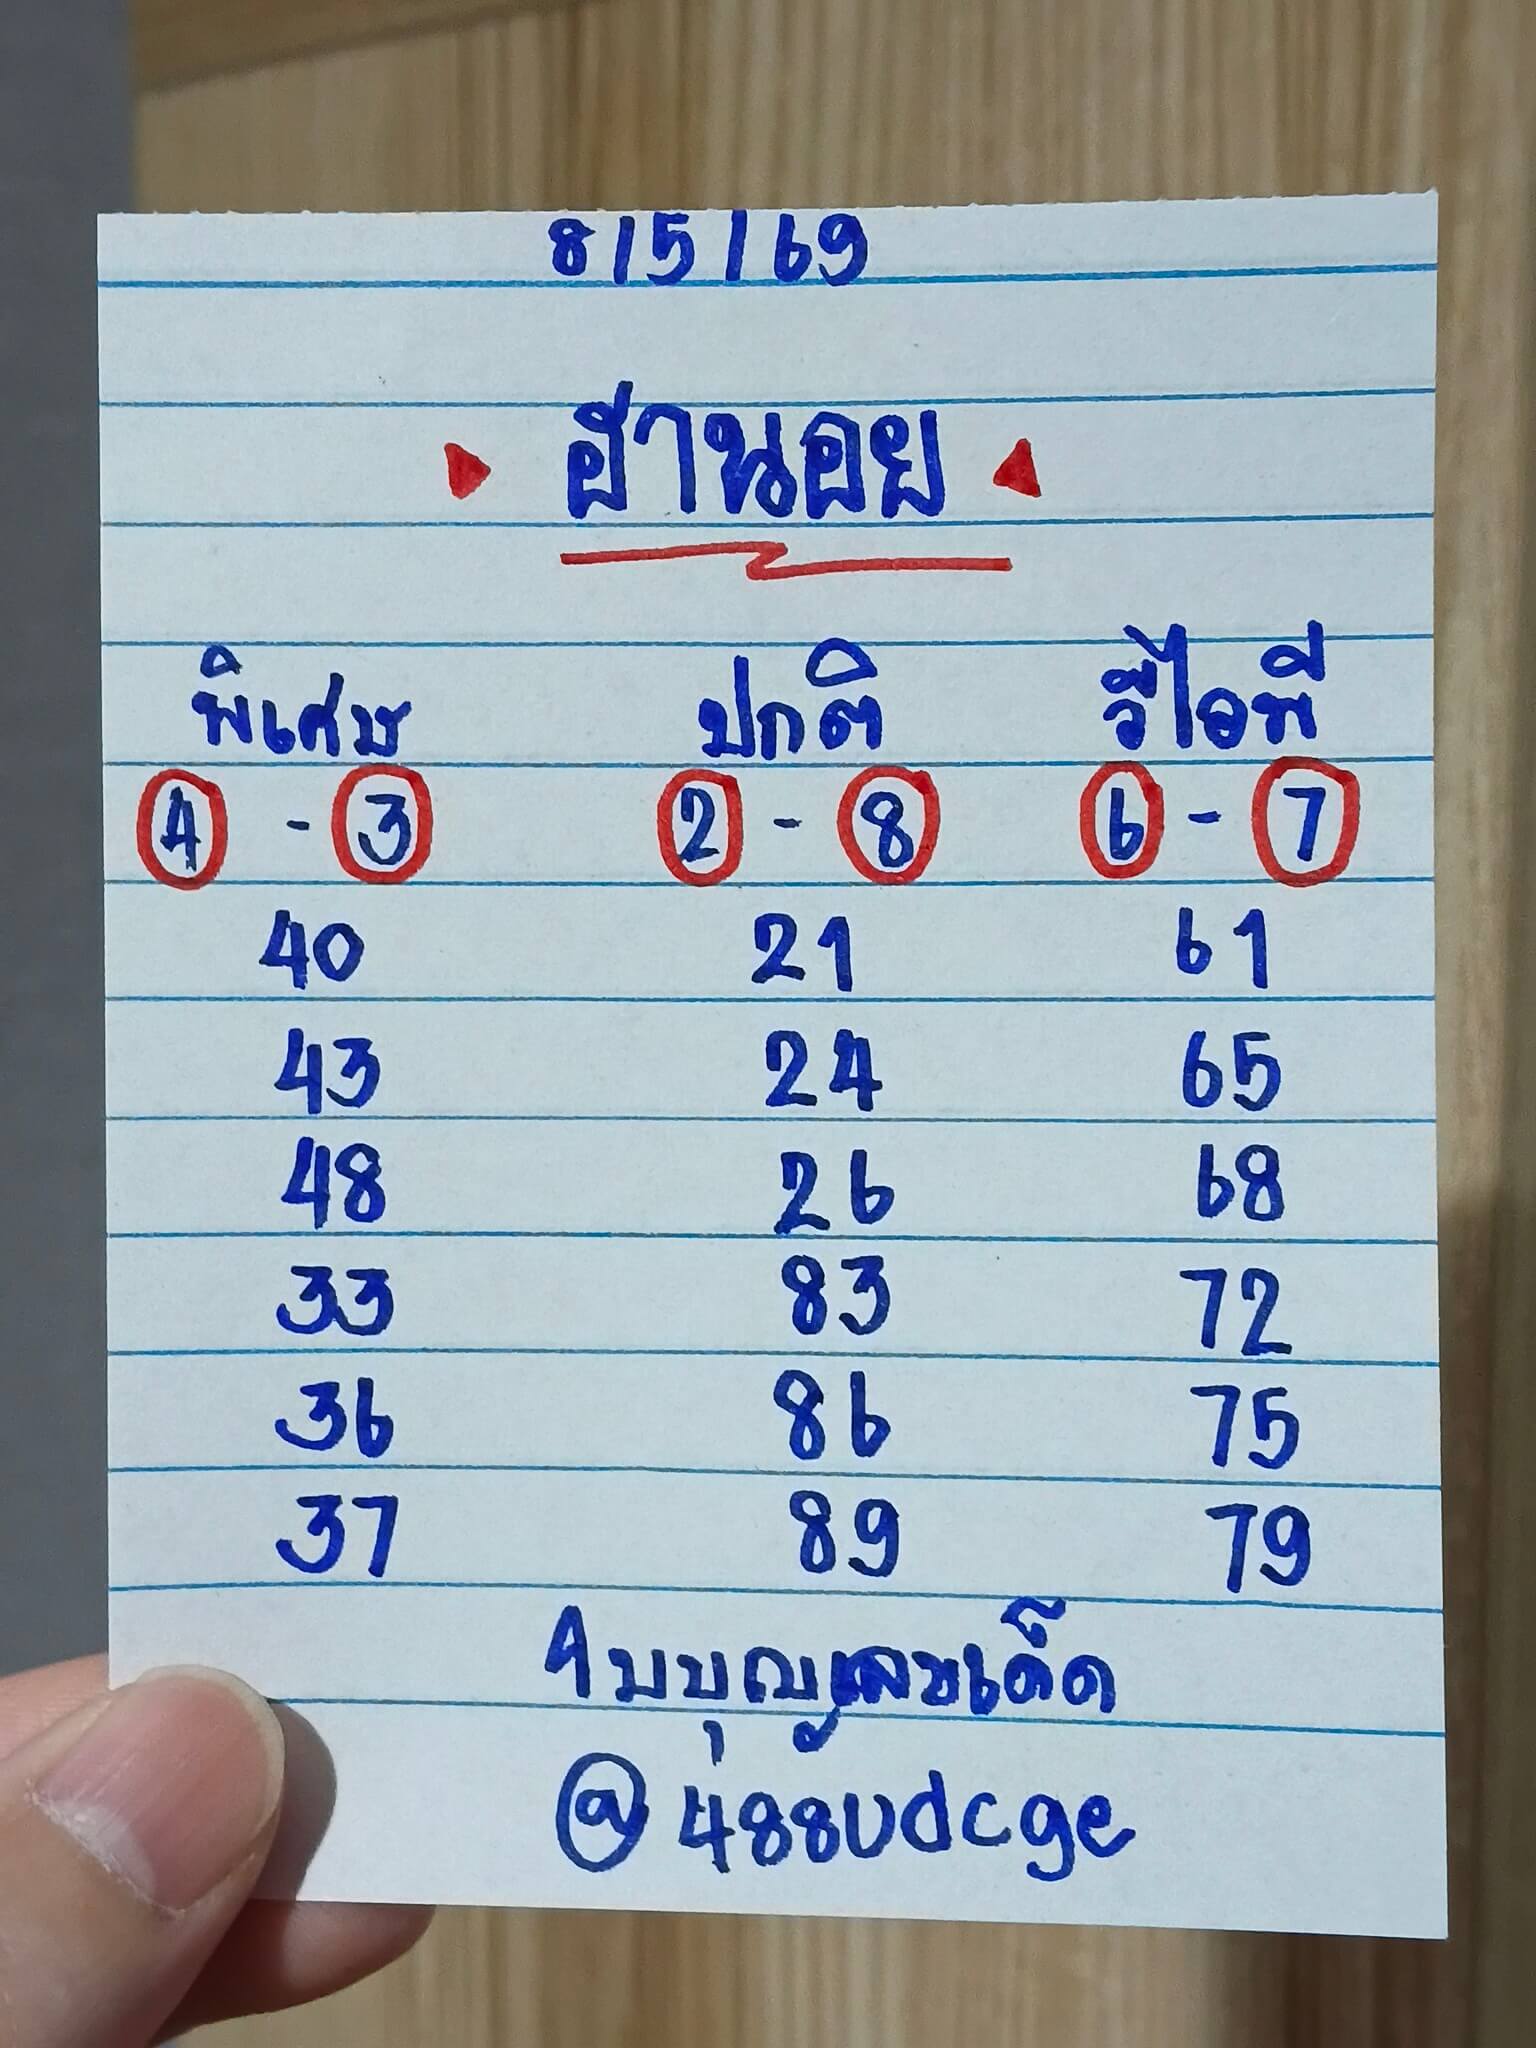 8/5/69
ฮานอย
พิเศษ ปกติ วีไอพี
4 - 3 2 - 8 6 - 7
40 21 61
43 24 65
48 26 68
33 83 72
36 86 75
37 89 79
แบบุญเลขเด็ด
@488udcge